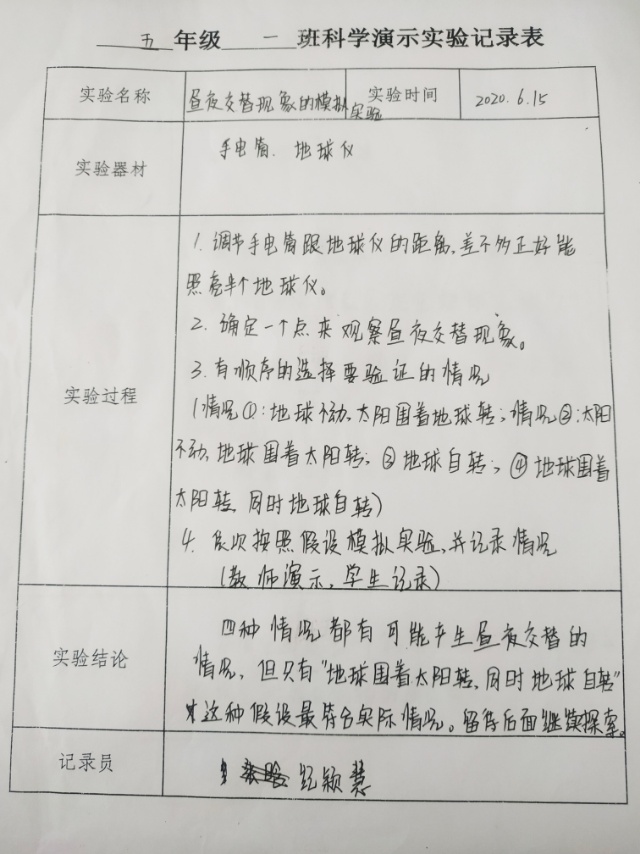 五年级一班科学演示实验记录表
实验名称 昼夜交替现象的模拟实验 实验时间 2020.6.15
实验器材 手电筒、地球仪
实验过程
1. 调节手电筒跟地球仪的距离,差不多正好能
照亮半个地球仪。
2. 确定一个点来观察昼夜交替现象。
3. 有顺序的选择要验证的情况
(情况①:地球不动,太阳围着地球转;情况②:太阳
不动,地球围着太阳转;③地球自转;④地球围着
太阳转,同时地球自转)
4. 依次按照假设模拟实验,并记录情况
(教师演示,学生记录)
实验结论
四种情况都有可能产生昼夜交替的
情况,但只有"地球围着太阳转,同时地球自转"
这种假设最符合实际情况。留待后面继续探索。
记录员 纪颖慧